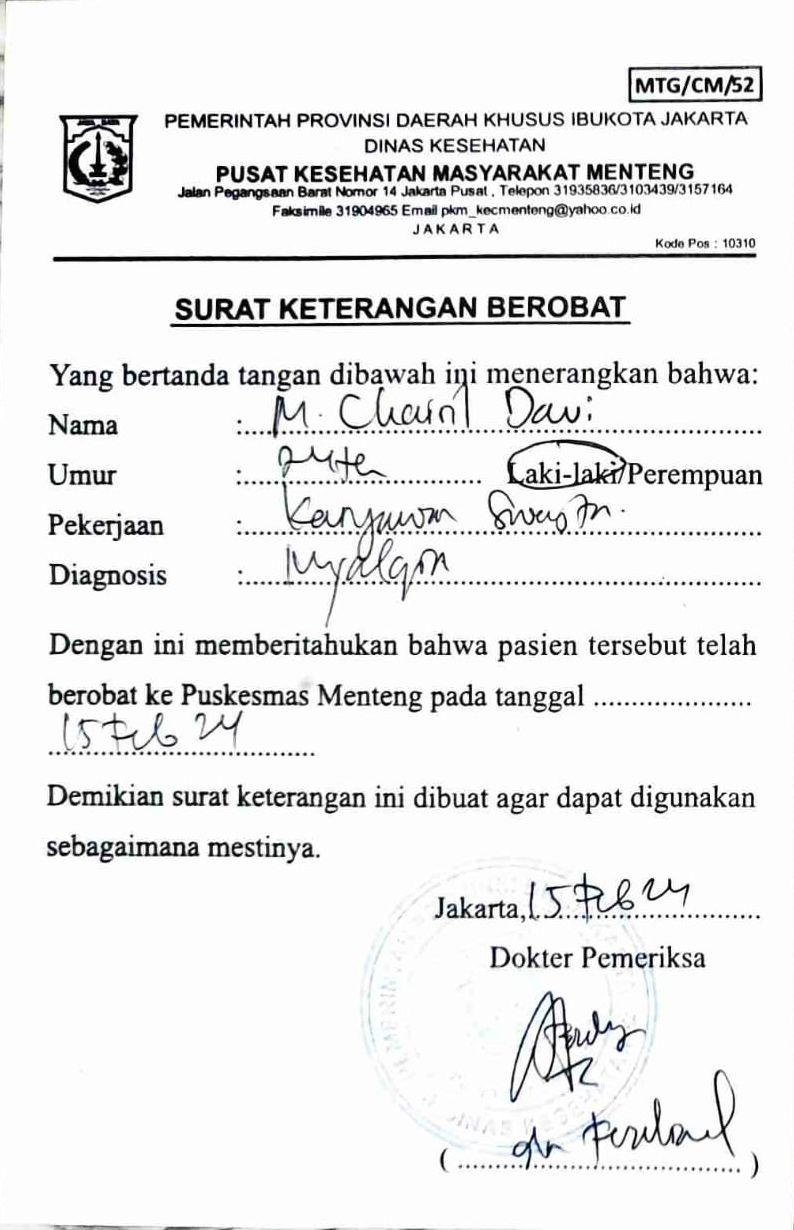 MTG/CM/52
JAYA RAYA
PEMERINTAH PROVINSI DAERAH KHUSUS IBUKOTA JAKARTA
DINAS KESEHATAN
PUSAT KESEHATAN MASYARAKAT MENTENG
Jalan Pegangsaan Barat Nomor 14 Jakarta Pusat , Telepon 31935836/3103439/3157164
Faksimile 31904965 Email pkm_kecmenteng@yahoo.co.id
JAKARTA
Kode Pos : 10310
SURAT KETERANGAN BEROBAT
Yang bertanda tangan dibawah ini menerangkan bahwa:
Nama :... M. Chairil Davi
Umur :... 24 th Laki-laki/Perempuan
Pekerjaan :... Karyawan Swasta.
Diagnosis :... Myalgia
Dengan ini memberitahukan bahwa pasien tersebut telah
berobat ke Puskesmas Menteng pada tanggal .....................
15 Feb 24
Demikian surat keterangan ini dibuat agar dapat digunakan
sebagaimana mestinya.
Jakarta, 15 Feb 24
Dokter Pemeriksa
( dr )